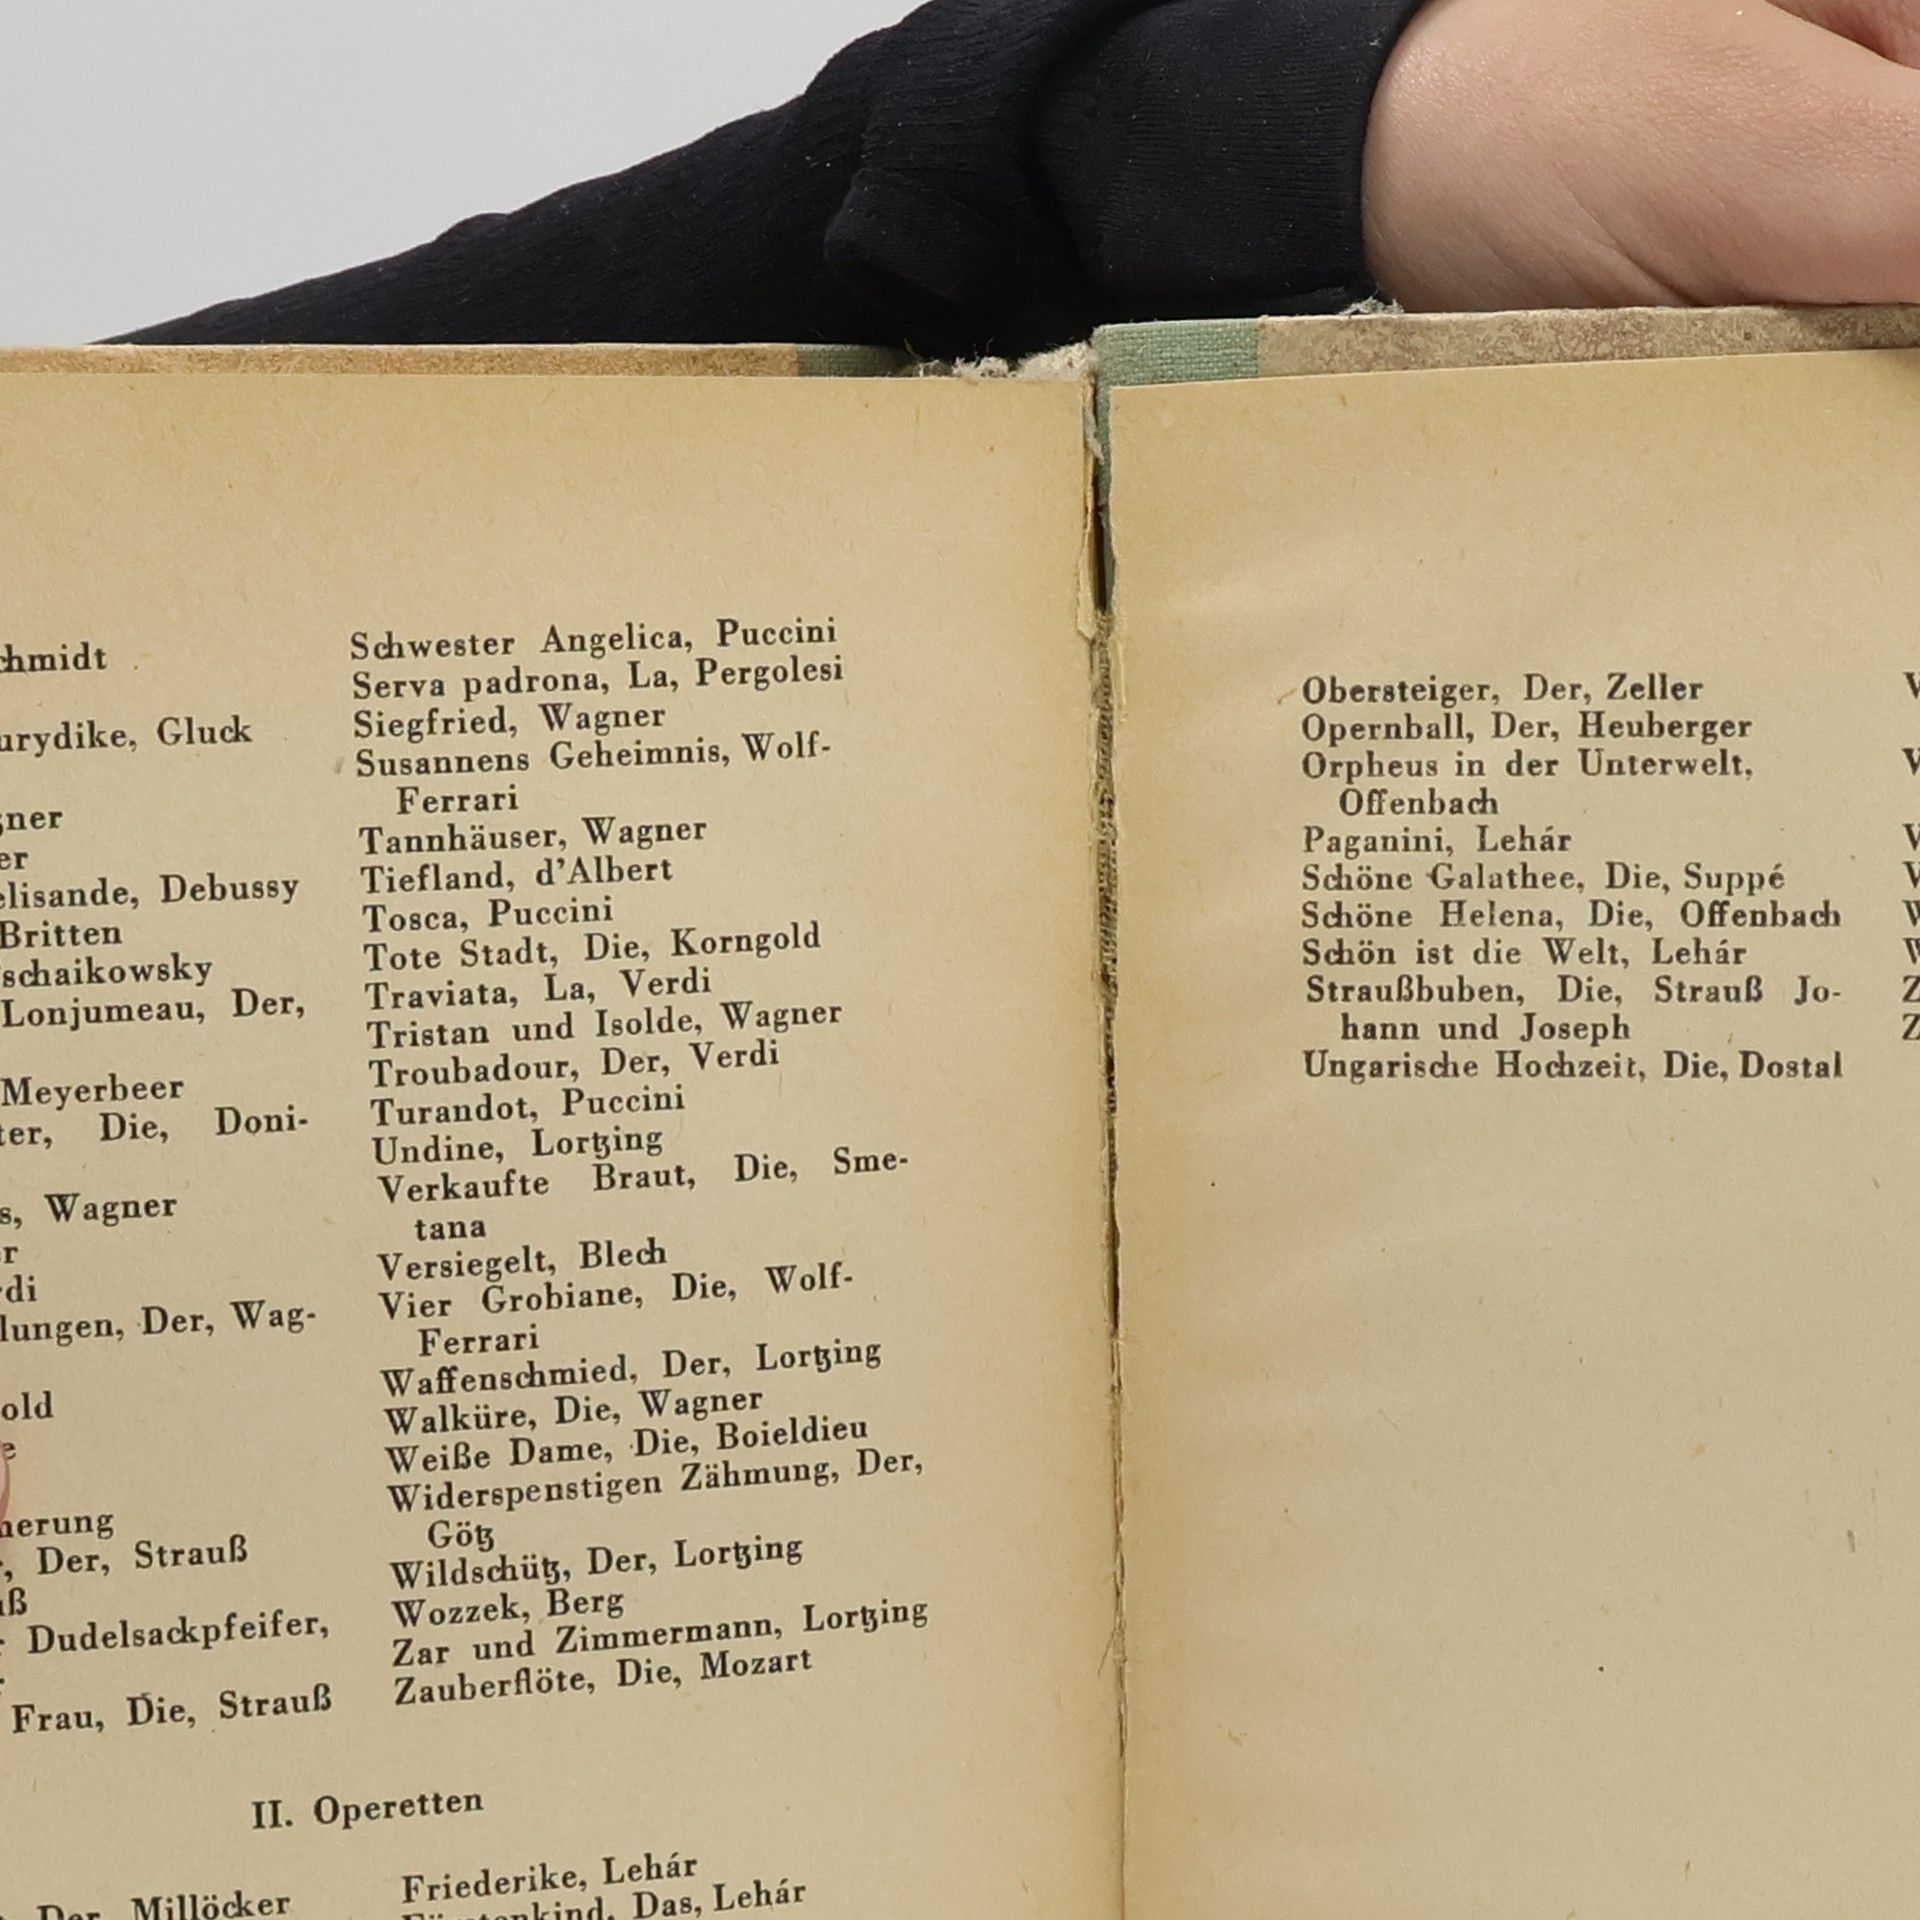 Gluck
Debussy
Britten
Lonjumeau, Der,
Meyerbeer
Die, Doni-
Wagner
Der, Wag-
Der, Strauß
Dudelsackpfeifer,
Frau, Die, Strauß
Schwester Angelica, Puccini
Serva padrona, La, Pergolesi
Siegfried, Wagner
Susannens Geheimnis, Wolf-
Ferrari
Tannhäuser, Wagner
Tiefland, d'Albert
Tosca, Puccini
Tote Stadt, Die, Korngold
Traviata, La, Verdi
Tristan und Isolde, Wagner
Troubadour, Der, Verdi
Turandot, Puccini
Undine, Lortzing
Verkaufte Braut, Die, Sme-
tana
Versiegelt, Blech
Vier Grobiane, Die, Wolf-
Ferrari
Waffenschmied, Der, Lortzing
Walküre, Die, Wagner
Weiße Dame, Die, Boieldieu
Widerspenstigen Zähmung, Der,
Götz
Wildschütz, Der, Lortzing
Wozzek, Berg
Zar und Zimmermann, Lortzing
Zauberflöte, Die, Mozart
II. Operetten
Der Millöcker
Friederike, Lehár
Das, Lehár
Obersteiger, Der, Zeller
Opernball, Der, Heuberger
Orpheus in der Unterwelt,
Offenbach
Paganini, Lehár
Schöne Galathee, Die, Suppé
Schöne Helena, Die, Offenbach
Schön ist die Welt, Lehár
Straußbuben, Die, Strauß Jo-
hann und Joseph
Ungarische Hochzeit, Die, Dostal